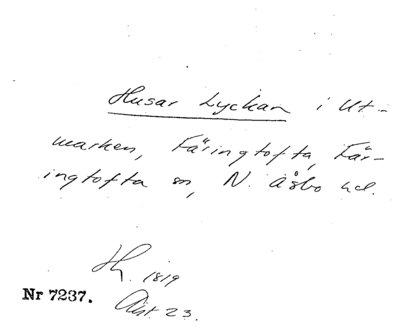 Husar Lyckan i Ut-
marken, Färingtofta, Fär-
ingtofta sn, N. Åsbo hd.
H. 1819
Nr 7237.
23.